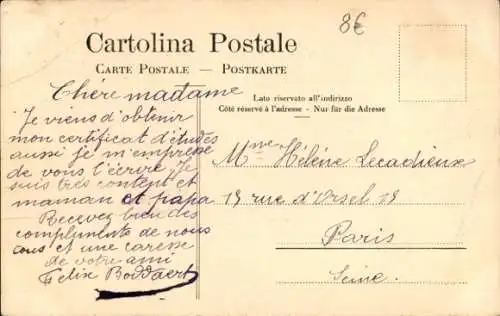 8€
Cartolina Postale
CARTE POSTALE — POSTKARTE
Lato riservato all'indirizzo
Côté réservé à l'adresse - Nur für die Adresse
Chére madame
Je viens d'obtenir
mon certificat d'études
aussi je m'empresse
de vous l'écrire. Je
suis très content et
maman et papa
Recevez bien des
compliments de nous
tous et une caresse
de votre ami
Felix Boddaert
Mme Hélène Lecadieux
13 rue d'Orsel 18
Paris
Seine.